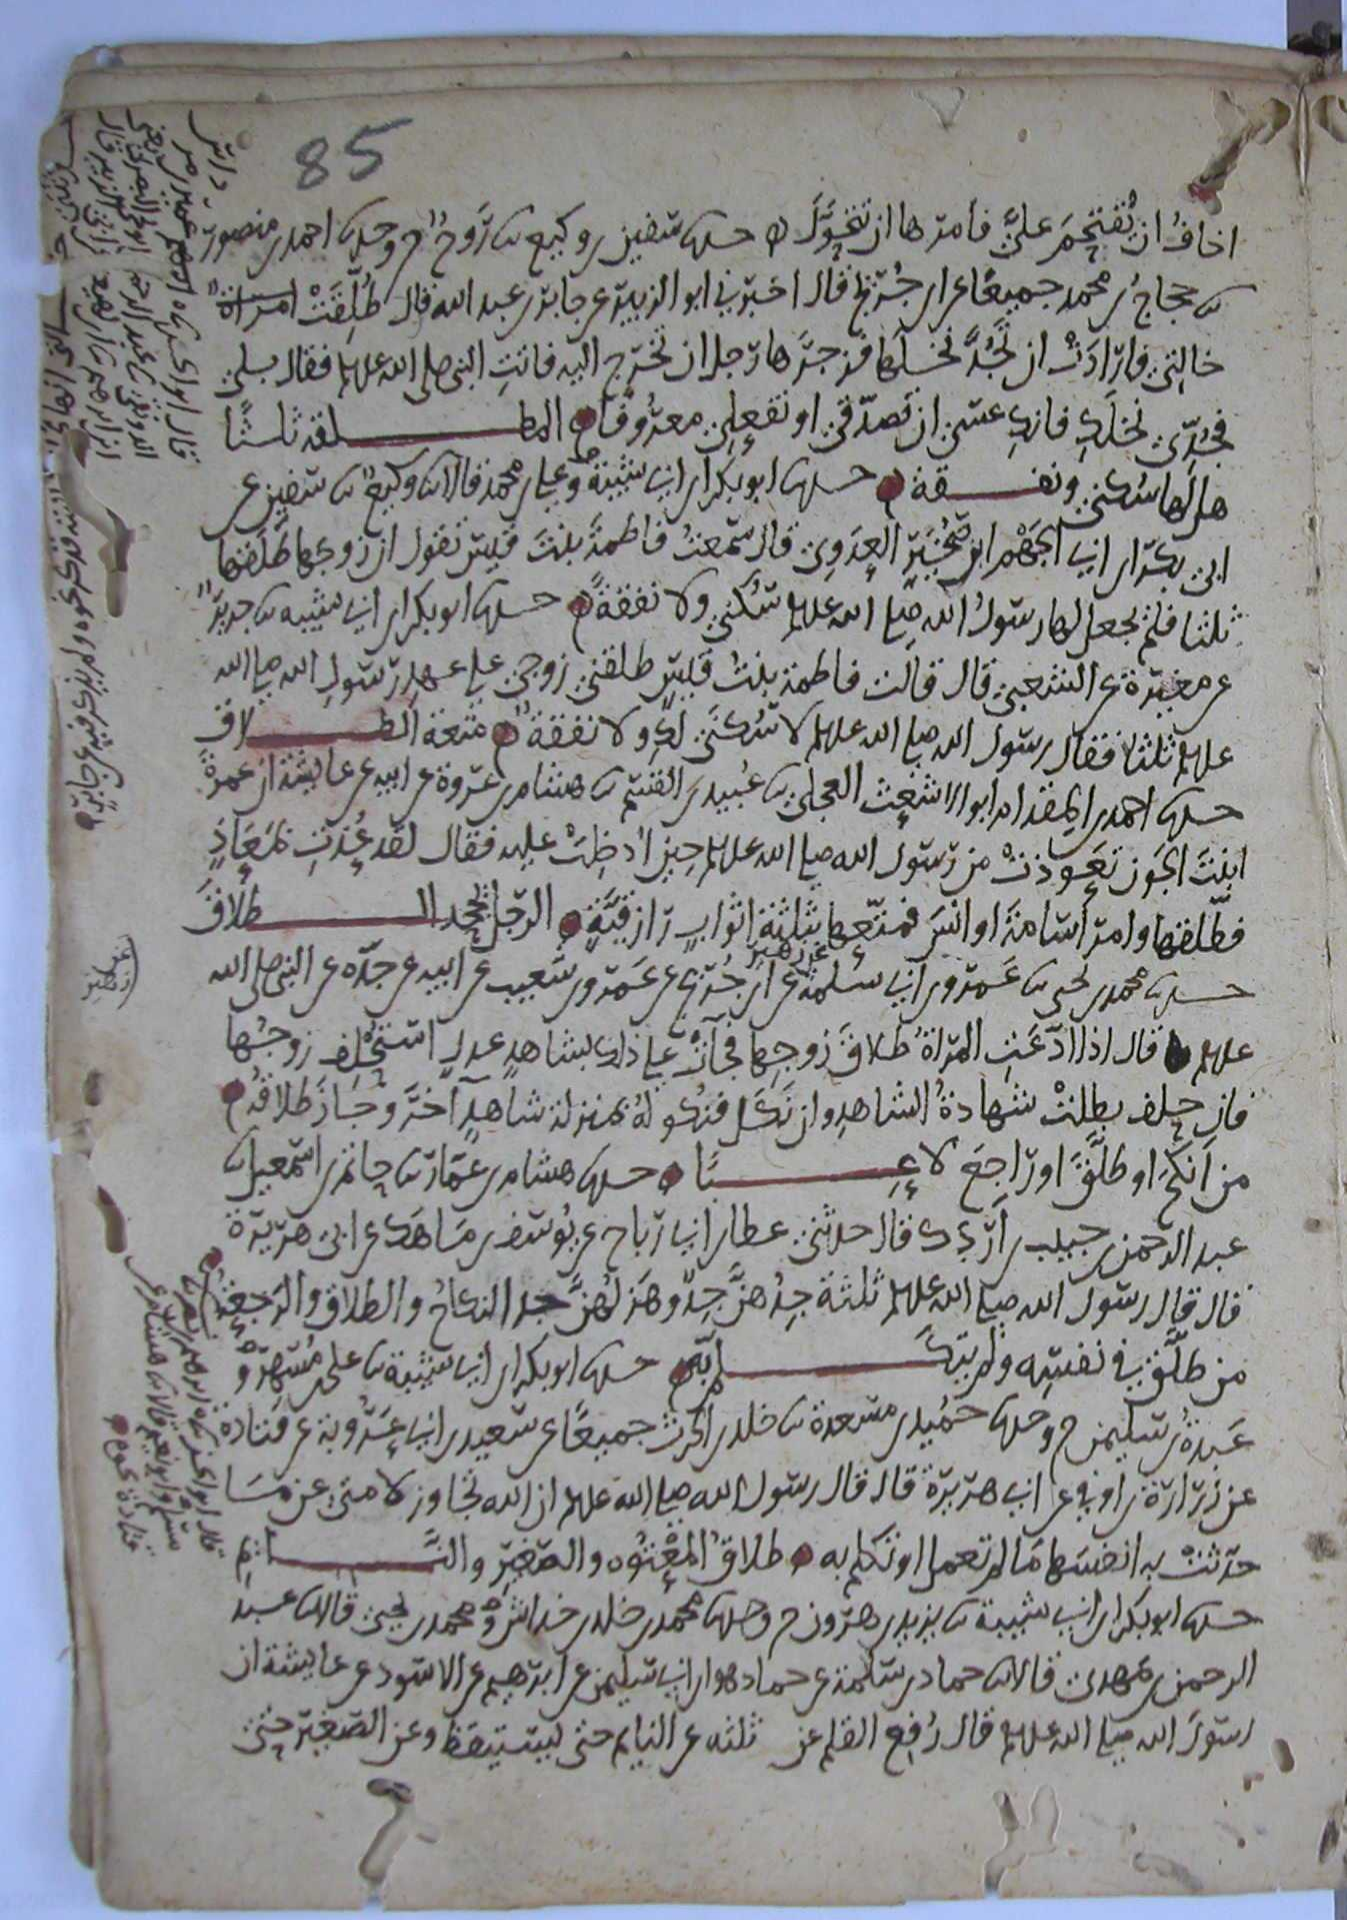 85
اخاف ان يقتحم علي فامرها ان تتحول حدثنا سفين بن وكيع ثنا روح ح وحدثنا احمد بن منصور
ثنا حجاج بن محمد جميعا عن ابن جريج قال اخبرني ابو الزبير عن جابر بن عبد الله قال طلقت امراة
خالتي فارادت ان تجد نخلها فزجرها رجل ان تخرج اليه فاتت النبي صلى الله عليه وسلم فقال بلى
فجدي نخلك فانك عسى ان تصدقي او تفعلي معروفا المطلقة ثلثا
هل لها سكنى ونفقة حدثنا ابو بكر بن ابي شيبة وعلي بن محمد قالا ثنا وكيع ثنا سفين عن
ابي بكر بن ابي الجهم ابن صخير العدوي قال سمعت فاطمة بنت قيس تقول ان زوجها طلقها
ثلثا فلم يجعل لها رسول الله صلى الله عليه وسلم سكنى ولا نفقة حدثنا ابو بكر بن ابي شيبه ثنا جرير
عن مغيرة عن الشعبي قال قالت فاطمة بنت قيس طلقني زوجي على عهد رسول الله صلى الله
عليه وسلم ثلثا فقال رسول الله صلى الله عليه وسلم لا سكنى لك ولا نفقة متعة الطلاق
حدثنا احمد بن المقدام ابو الاشعث العجلي ثنا عبيد بن القسم ثنا هشام بن عروة عن ابيه عن عايشة ان عمرة
ابنت الجون تعوذت من رسول الله صلى الله عليه وسلم حين ادخلت عليه فقال لقد عذت بمعاذ
فطلقها وامر اسامة او انس فمتعها بثلثة اثواب رازقية الرجل يجحد الطلاق
حدثنا محمد بن يحيى ثنا عمرو بن ابي سلمة عن زهير عن ابن جريج عن عمرو بن شعيب عن ابيه عن جده عن النبي صلى الله
عليه وسلم قال اذا ادعت المراة طلاق زوجها فجات على ذلك بشاهد عدل استحلف زوجها
فان حلف بطلت شهادة الشاهد وان نكل فنكوله بمنزلة شاهد آخر وجاز طلاقه
من انكح او طلق او راجع لاعبا حدثنا هشام بن عمار ثنا حاتم بن اسمعيل ثنا
عبد الرحمن بن حبيب بن اردك قال حدثني عطا بن ابي رباح عن يوسف بن ماهك عن ابي هريرة
قال قال رسول الله صلى الله عليه وسلم ثلثة جدهن جد وهزلهن جد النكاح والطلاق والرجعة
من طلق في نفسه ولم يتكلم به حدثنا ابو بكر بن ابي شيبة ثنا علي بن مسهر و
عبدة بن سليمن ح وحدثنا حميد بن مسعدة ثنا خلد بن الحرث جميعا عن سعيد بن ابي عروبة عن قتادة
عن زرارة بن اوفى عن ابي هريرة قال قال رسول الله صلى الله عليه وسلم ان الله تجاوز لامتي عن ما
حدثت به انفسها ما لم تعمل او تكلم به طلاق المعتوه والصغير والنائم
حدثنا ابو بكر بن ابي شيبة ثنا يزيد بن هرون ح وحدثنا محمد بن خلد بن خداش ومحمد بن يحيى قالا ثنا عبد
الرحمن بن مهدي قالا ثنا حماد بن سلمة عن حماد هو ابن ابي سليمن عن ابرهيم عن الاسود عن عايشة ان
رسول الله صلى الله عليه وسلم قال رفع القلم عن ثلثه عن النايم حتى يستيقظ وعن الصغير حتى